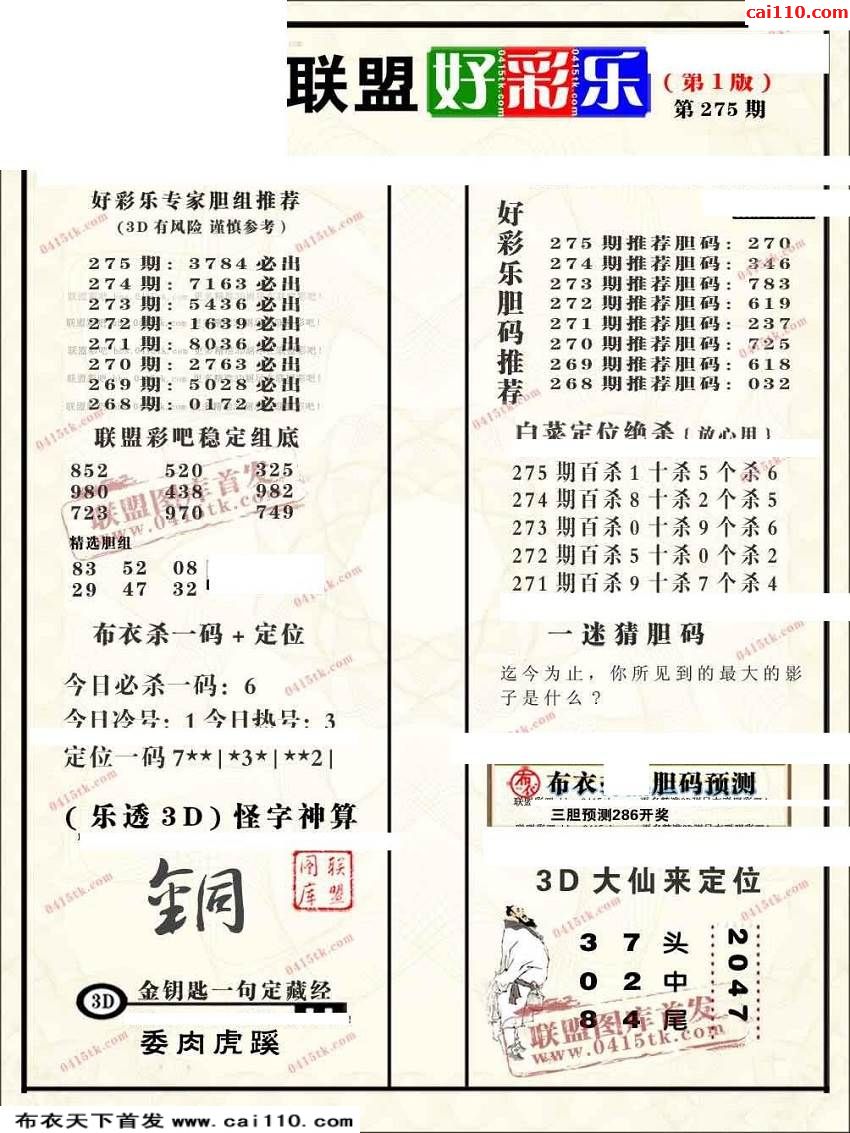 cai110.com
联盟好彩乐
(第1版)
第275期
好彩乐专家胆组推荐
(3D有风险 谨慎参考)
275期：3784必出
274期：7163必出
273期：5436必出
272期：1639必出
271期：8036必出
270期：2763必出
269期：5028必出
268期：0172必出
联盟彩吧稳定组底
852 520 325
980 438 982
723 970 749
精选胆组
83 52 08
29 47 32
联盟图库首发
www.0415tk.com
布衣杀一码+定位
今日必杀一码：6
今日冷号：1 今日热号：3
定位一码7**|*3*|**2|
(乐透3D)怪字神算
銅
联盟图库
3D 金钥匙一句定藏经
委肉虎蹊
好彩乐胆码推荐
275期推荐胆码：270
274期推荐胆码：346
273期推荐胆码：783
272期推荐胆码：619
271期推荐胆码：237
270期推荐胆码：725
269期推荐胆码：618
268期推荐胆码：032
白菜定位绝杀{放心用}
275期百杀1十杀5个杀6
274期百杀8十杀2个杀5
273期百杀0十杀9个杀6
272期百杀5十杀0个杀2
271期百杀9十杀7个杀4
一迷猜胆码
迄今为止，你所见到的最大的影
子是什么?
布衣 胆码预测
三胆预测286开奖
3D大仙来定位
3 7 头
0 2 中
8 4 尾
2047
联盟图库首发
www.0415tk.com
布衣天下首发 www.cai110.com